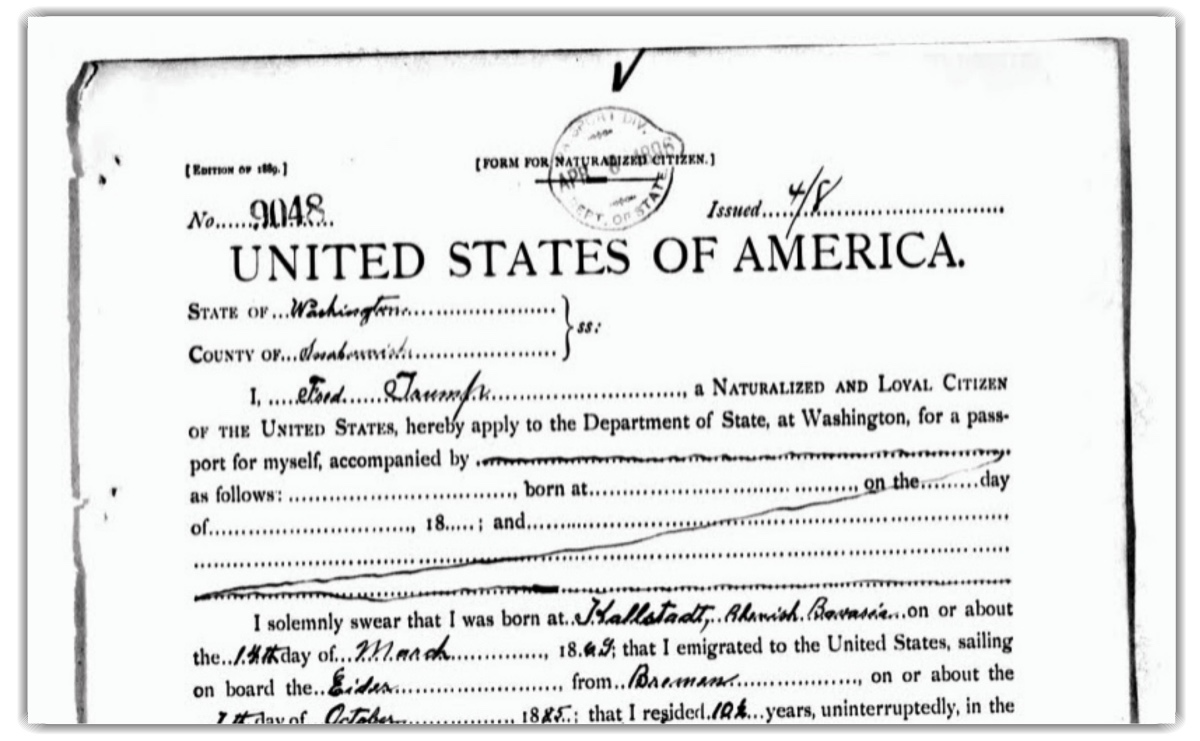 [EDITION OF 1889.]
[FORM FOR NATURALIZED CITIZEN.]
PASSPORT DIV.
DEPT. OF STATE
No......9048...
Issued.....4/8......................
UNITED STATES OF AMERICA.
STATE OF...Washington.....................
ss:
COUNTY OF...Snohomish.....................
I, ....Fred......Trump............................, a NATURALIZED AND LOYAL CITIZEN
OF THE UNITED STATES, hereby apply to the Department of State, at Washington, for a pass-
port for myself, accompanied by
as follows: ................................., born at......................................, on the.........day
of............................., 18.....; and
I solemnly swear that I was born at..Kallstadt,..Rhenish.Bavaria...on or about
the..14th day of...March..............., 18.69; that I emigrated to the United States, sailing
on board the..Eider........................., from..Bremen..................., on or about the
7th day of October............, 1885; that I resided ... years, uninterruptedly, in the